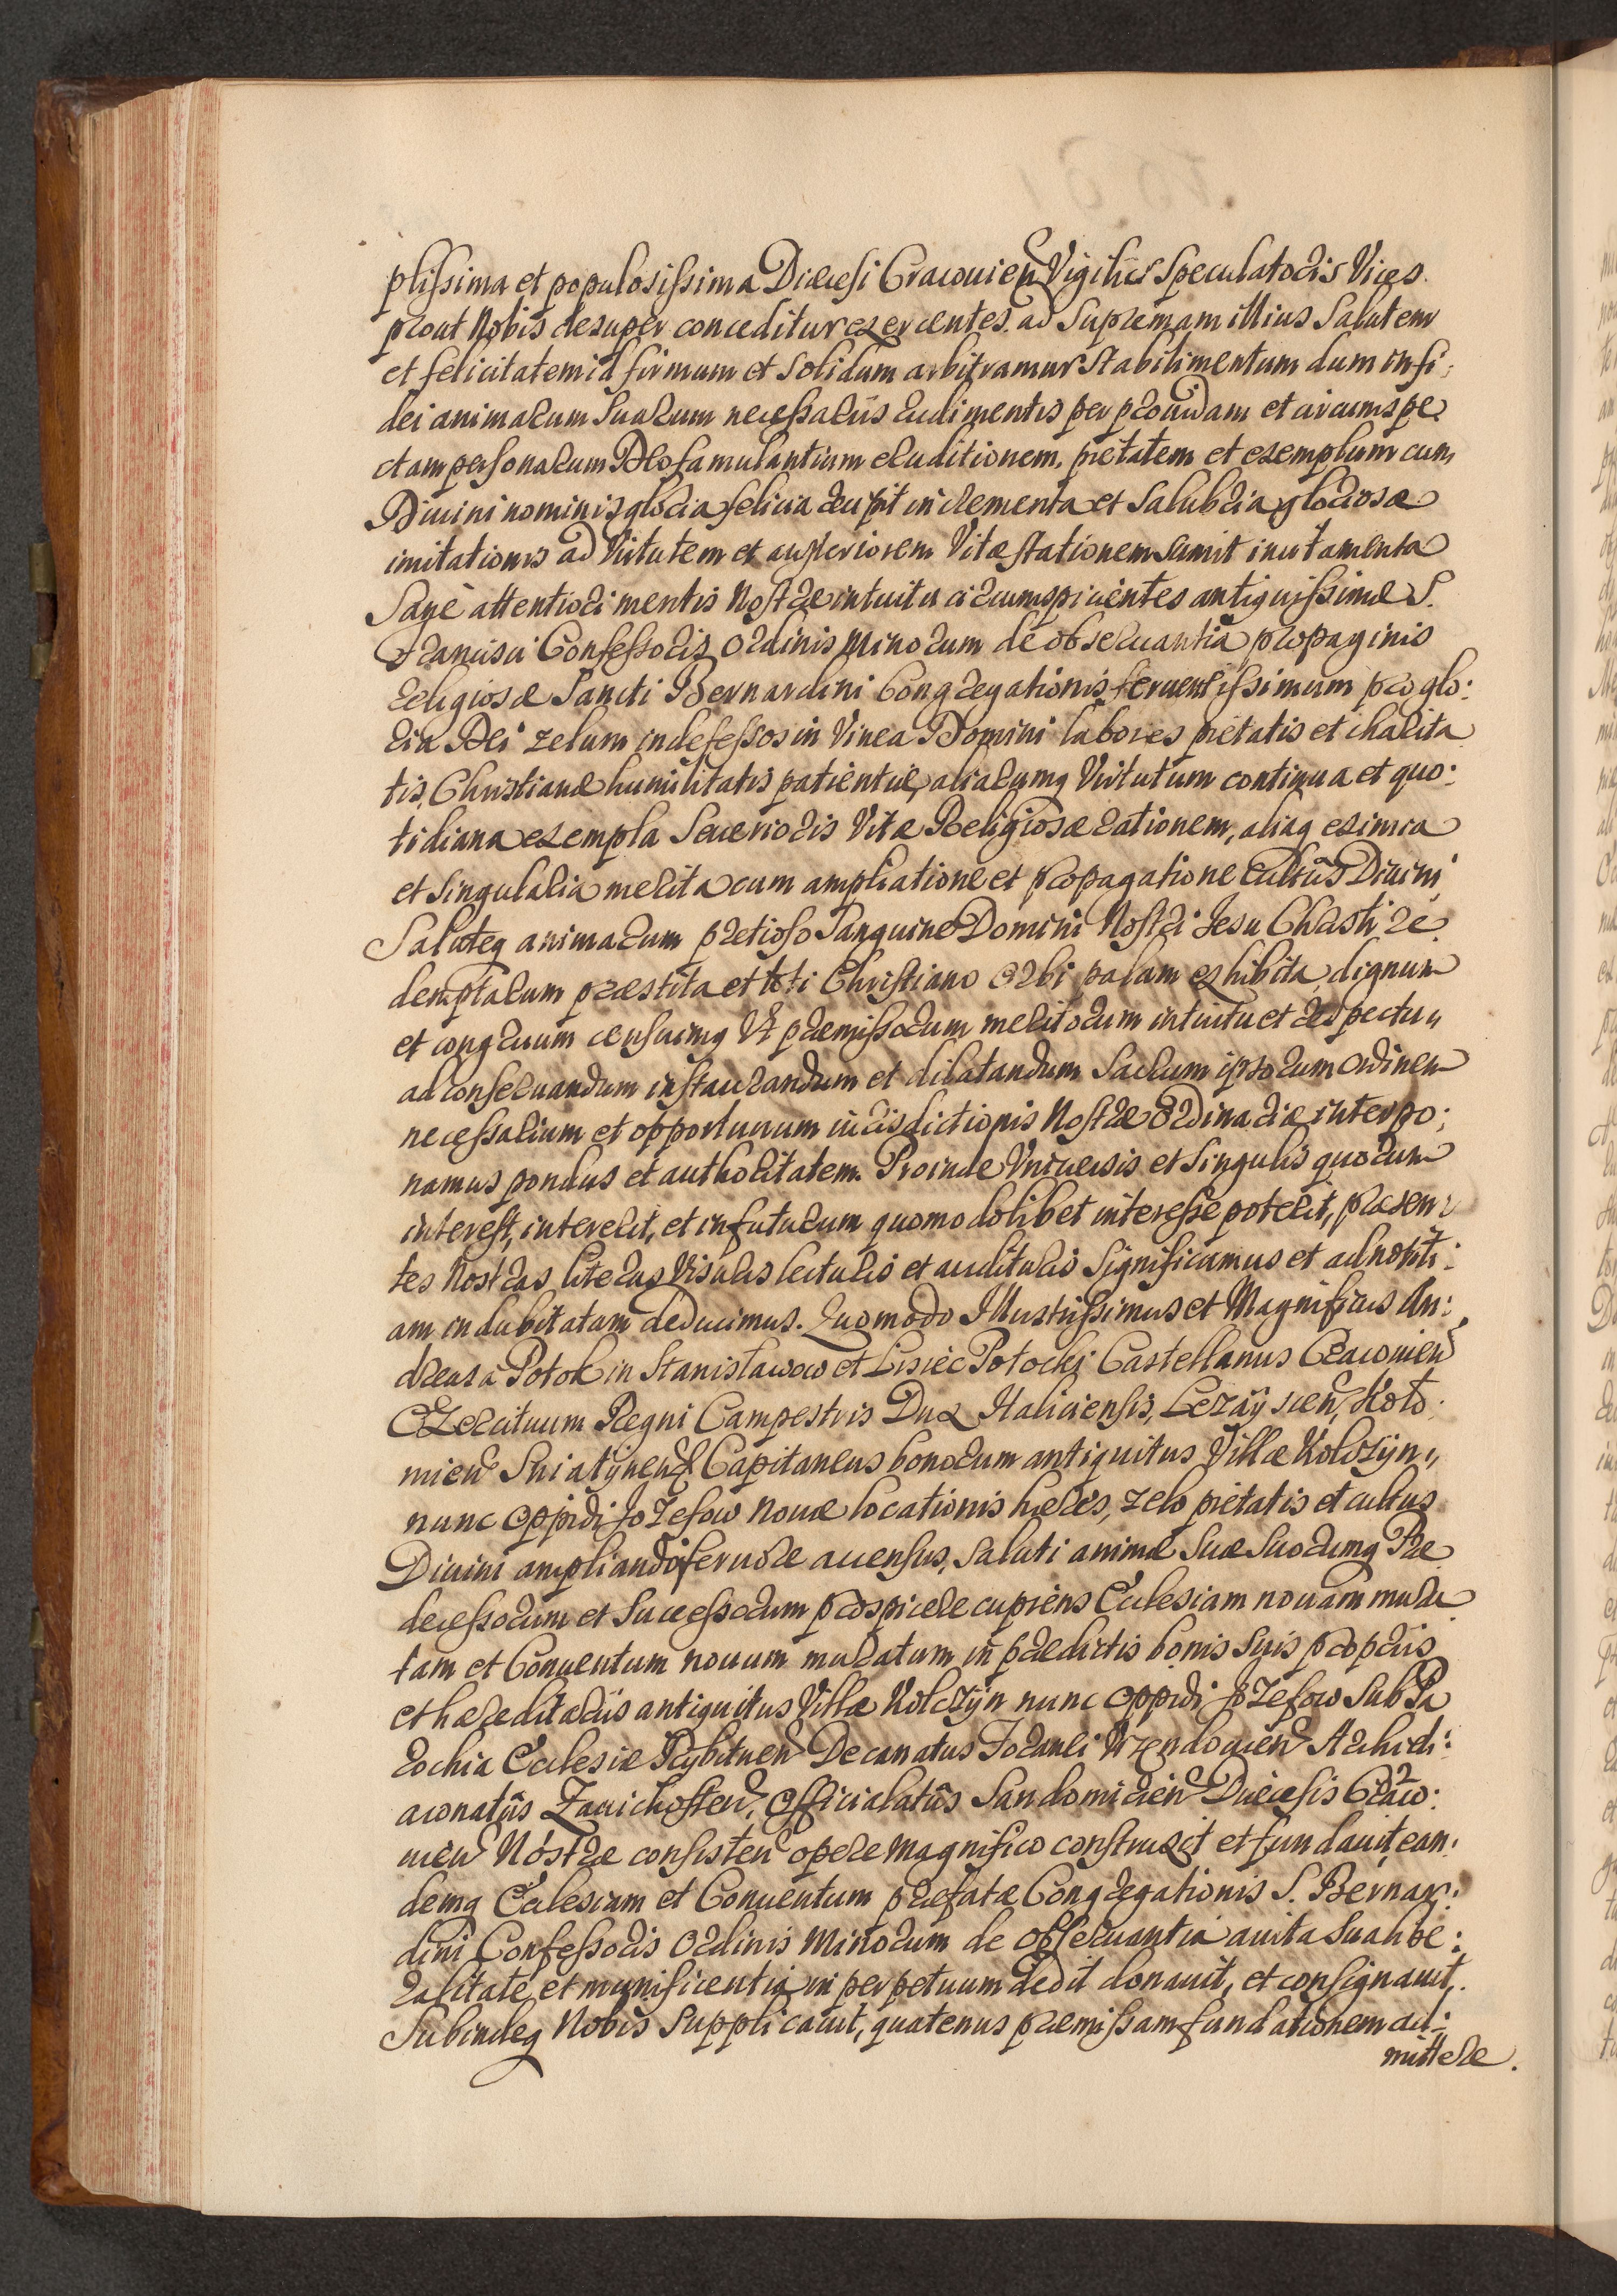 plissima et populosissima Diæcesi Cracouien Vigilis Speculatoris Vices
prout Nobis desuper conceditur exercentes. ad Supremam illius Salutem
et felicitatem id firmum et Solidum arbitramur Stabilimentum dum in fi:
dei animarum Suarum necessariis rudimentis per prouidam et circumspe
ctam personarum Deo famulantium eruditionem, pietatem et exemplum cum
Diuini nominis gloria felicia accipit inclementa et Salubria gloriosæ
imitationis ad Virtutem et austeriorem Vitæ stationem sumit inuitamenta
Sane attentiori mentis Nostræ intuitu circumspicientes antiquissimæ S.
Francisci Confessoris Ordinis Minorum de obseruantia propaginis
religiosæ Sancti Bernardini Congregationis feruentissimum pro glo:
ria Dei zelum indefessos in Vinea Domini labores pietatis et charita
tis, Christianæ humilitatis patientiæ, aliarumq Virtutum continua et quo:
tidiana exempla Seuerioris Vitæ Religiosæ rationem, aliaq eximia
et Singularia merita cum ampliatione et propagatione Cultus Diuini
Saluteq animarum pretioso Sanguine Domini Nostri Jesu Christi re
demptarum præstita et toti Christiano Orbi palam exhibita, dignum
et congruum censuimq Vt præmissorum meritorum intuitu et respectu
ad conseruandum instaurandum et dilatandum Sacrum ipsorum Ordinem
necessarium et opportunum iurisdictionis Nostræ Ordinariæ interpo:
namus pondus et authoritatem. Proinde Vniuersis et Singulis quorum
interest, intererit, et in futurum quomodolibet interesse poterit, præsen:
tes Nostras literas Visuris lecturis et audituris Significamus et ad notiti:
am indubitatam deducimus. Quomodo Illustrissimus et Magnificus An:
dreas a Potok in Stanisławow et Lisiec Potocki Castellanus Cracouien
Exercituum Regni Campestris Dux Haliciensis, Lezaÿscen, Koło:
mien Sniatÿnen Capitaneus bonorum antiquitus Villæ Kolczÿn,
nunc Oppidi Jozefow nouæ locationis hæres, zelo pietatis et cultus
Diuini ampliandi feruore accensus, Saluti animæ Suæ Suorumq Præ
decessorum et Successorum prospicere cupiens Ecclesiam nouam mura
tam et Conuentum nouum muratum in prædictis bonis Suis proprijs
et hæreditariis antiquitus Villæ Kolczÿn nunc Oppidi Jozefow Sub Pa
rochia Ecclesiæ Rÿbitwen Decanatus Foranei Vrzendouien Archidi:
aconatus Zauichosten, Officialatus Sandomirien Diæcesis Craco:
uien Nostræ consisten opere magnifico construxit et fundauit, ean:
demq Ecclesiam et Conuentum præfatæ Congregationis S. Bernar:
dini Confessoris Ordinis Minorum de Obseruantia auita Sua libe:
ralitate et munificentia in perpetuum dedit donauit, et consignauit,
Subindeq Nobis Supplicauit, quatenus præmissam fundationem ad:
mittere.